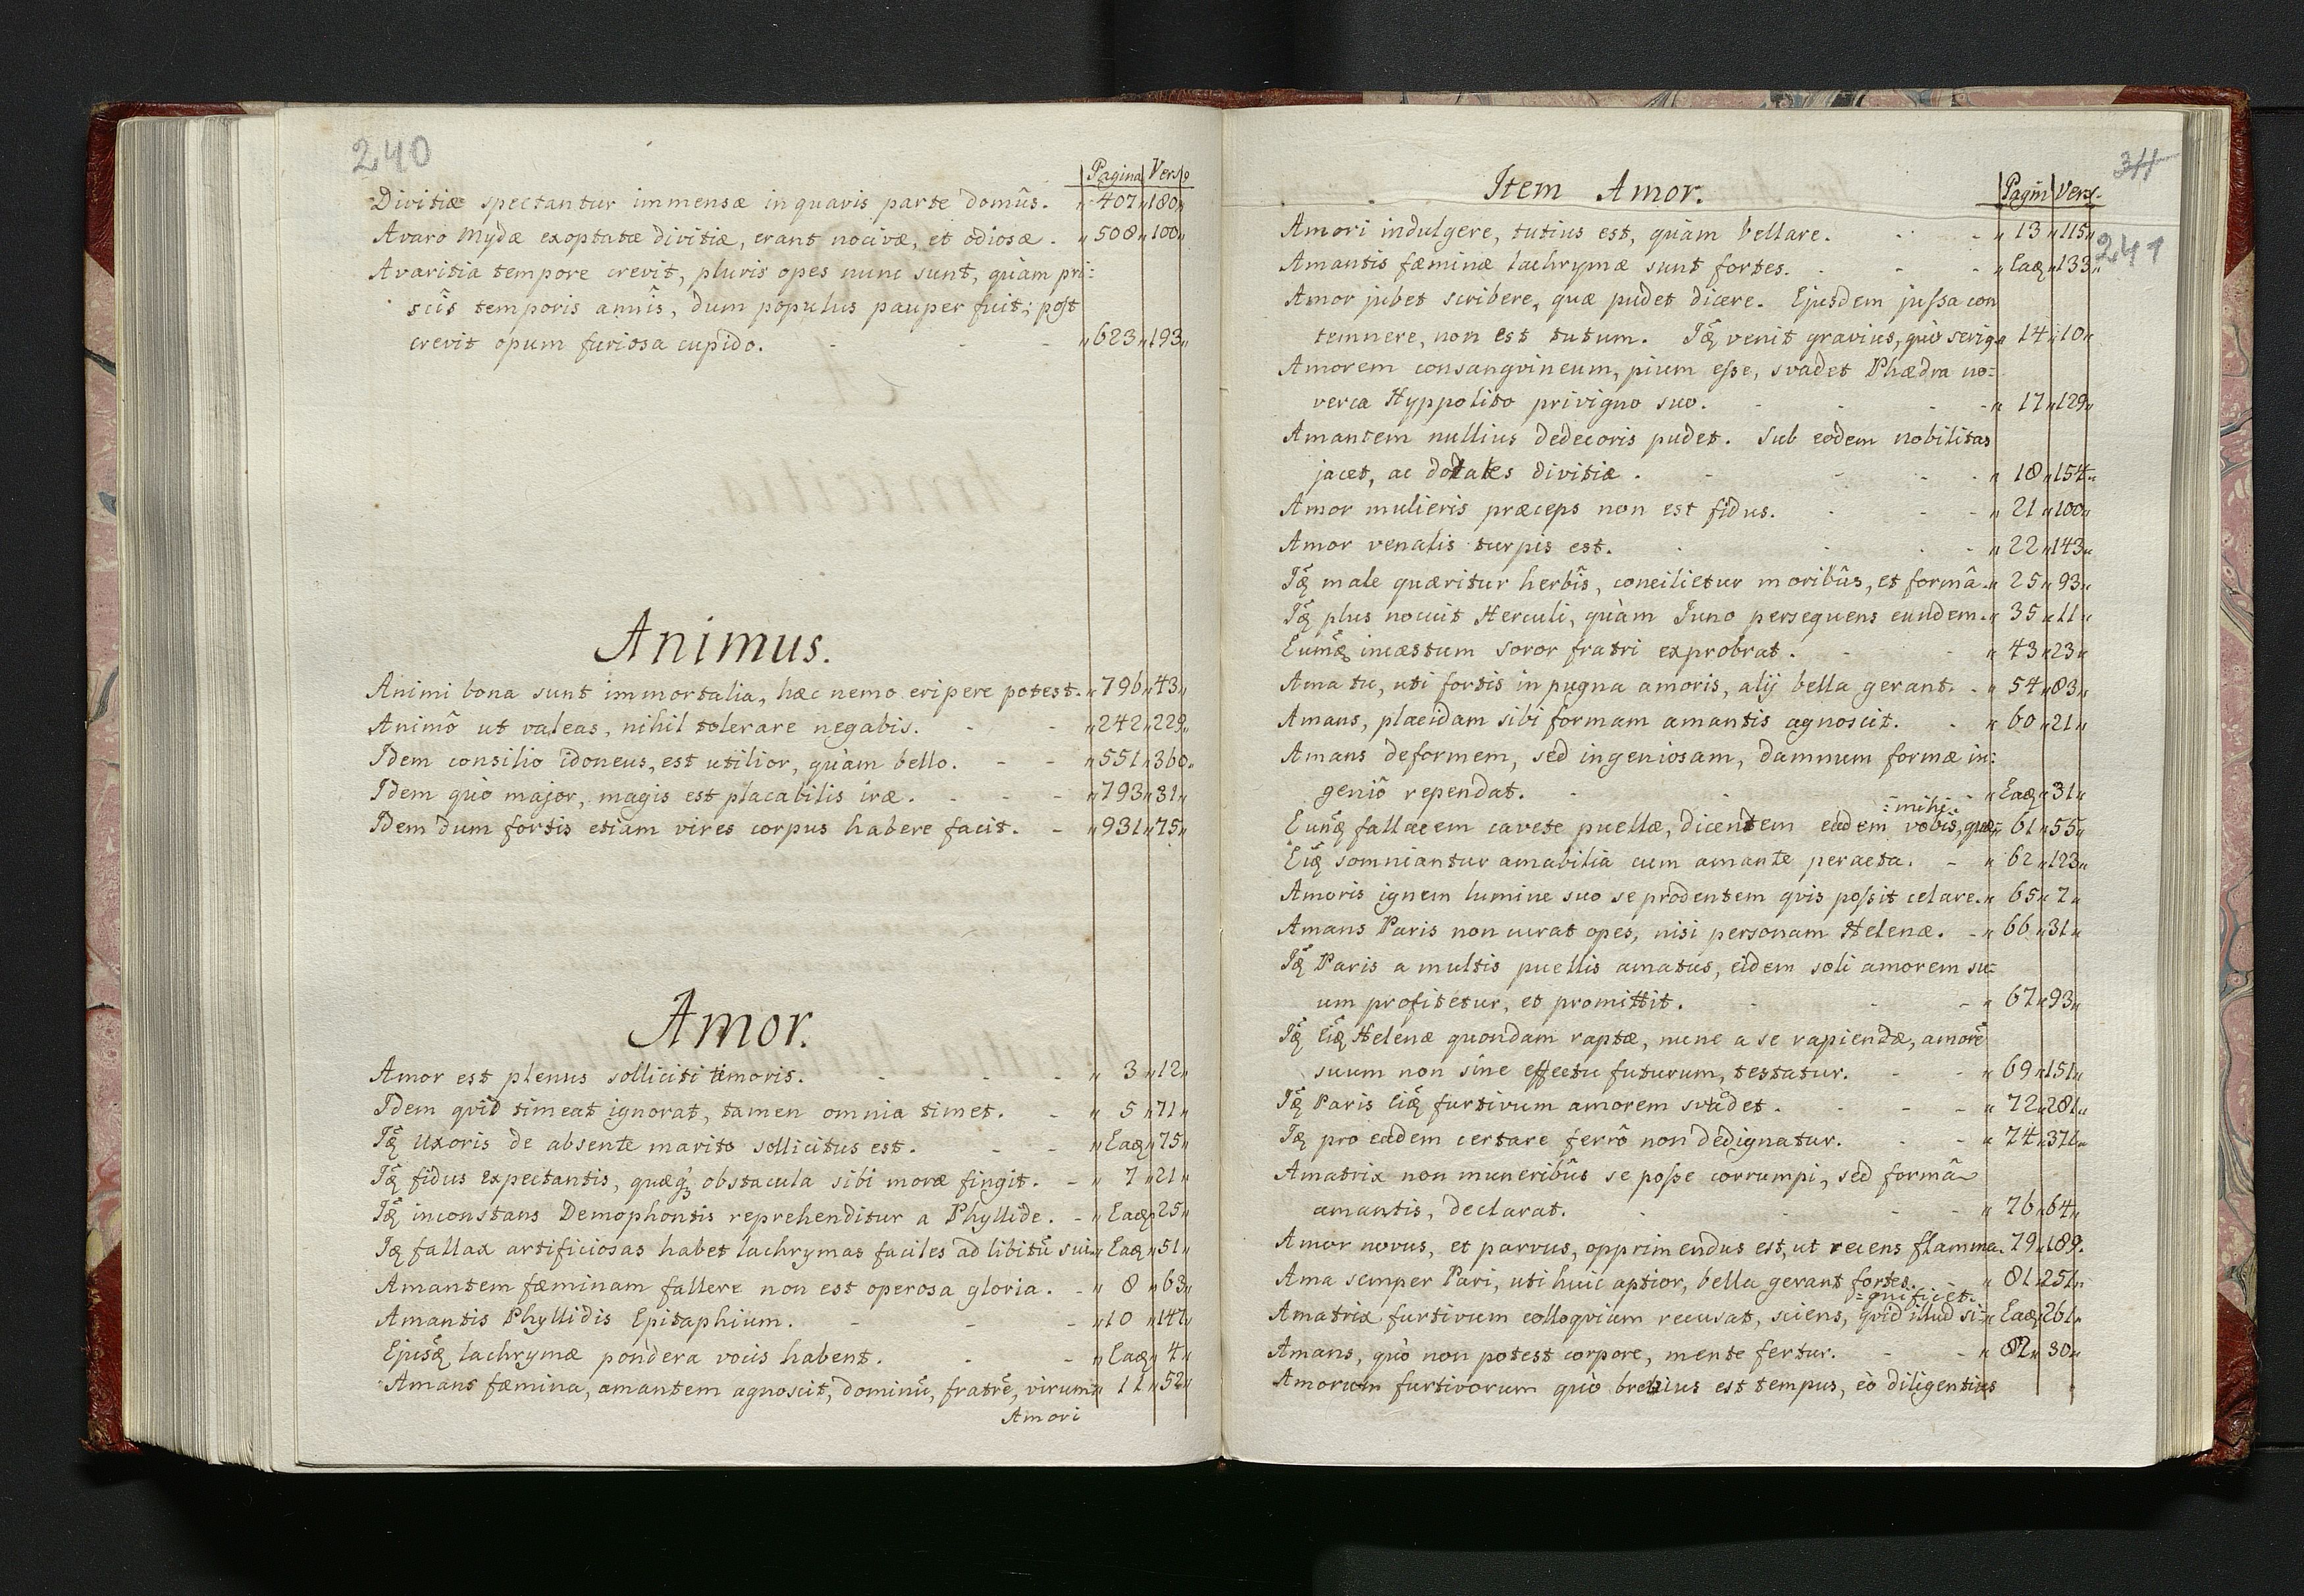 240
Pagina Verso
Divitiæ spectantur immensæ in quavis parte domûs. „ 407 „ 180 „
Avaro Mydæ exoptatæ divitiæ, erant nocivæ, et odiosæ. „ 508 „ 100 „
Avaritia tempore crevit, pluris opes nunc sunt, quàm pri:
scîs temporis annîs, dum populus pauper fuit; post
crevit opum furiosa cupido. - - - „ 623 „ 193 „
Animus.
Animi bona sunt immortalia, hæc nemo eripere potest. „ 796 „ 43 „
Animô ut valeas, nihil tolerare negabis. - - „ 242 „ 229 „
Idem consilio idoneus, est utilior, quàm bello. - - „ 551 „ 360 „
Idem quò major, magis est placabilis iræ. - - - „ 793 „ 31 „
Idem dum fortis etiam vires corpus habere facit. - „ 931 „ 75 „
Amor.
Amor est plenus solliciti timoris. - - - „ 3 „ 12 „
Idem qvid timeat ignorat, tamen omnia timet. - „ 5 „ 71 „
Iꝫ Uxoris de absente marito sollicitus est. - - „ Eaꝫ „ 75 „
Iꝫ fidus expectantis, quæqꝫ obstacula sibi moræ fingit. - „ 7 „ 21 „
Iꝫ inconstans Demophontis reprehenditur a Phyllide. - „ Eaꝫ „ 25 „
Iꝫ fallax artificiosas habet lachrymas faciles ad libitū sui. „ Eaꝫ „ 51 „
Amantem fæminam fallere non est operosa gloria. - „ 8 „ 63 „
Amantis Phyllidis Epitaphium. - - - „ 10 „ 147 „
Ejusꝫ lachrymæ pondera vocis habent. - - „ Eaꝫ „ 4 „
Amans fæmina, amantem agnoscit, dominū, fratrē, virum „ 11 „ 52 „
Amori
311
Item Amor. Pagin Vers.
241
Amori indulgere, tutius est, quàm bellare. - - „ 13 „ 115 „
Amantis fæminæ lachrymæ sunt fortes. - - - „ Eaꝫ „ 133 „
Amor jubet scribere, quæ pudet dicere. Ejusdem jussa con
temnere, non est tutum. Iꝫ venit gravius, quò seriꝰ „ 14 „ 10 „
Amorem consangvineum, pium esse, svadet Phædra no:
verca Hyppolito privigno suo. - - - „ 17 „ 129 „
Amantem nullius dedecoris pudet. Sub eodem nobilitas
jacet, ac dotales divitiæ. - - - - „ 18 „ 154 „
Amor mulieris præceps non est fidus. - - - „ 21 „ 100 „
Amor venalis turpis est. - - - - „ 22 „ 143 „
Iꝫ male quæritur herbîs, concilietur moribûs, et formâ. „ 25 „ 93 „
Iꝫ plus nocuit Herculi, quàm Juno persequens eundem. „ 35 „ 11 „
Eumꝫ incæstum soror fratri exprobrat. - - „ 43 „ 23 „
Ama tu, uti fortis in pugna amoris, alij bella gerant. - „ 54 „ 83 „
Amans, placidam sibi formam amantis agnoscit. - „ 60 „ 21 „
Amans deformem, sed ingeniosam, damnum formæ in:
geniô rependat. - - - „ Eaꝫ „ 31 „
:mihi.
Eunꝫ fallacem cavete puellæ, dicentem eadem vobîs, quæ „ 61 „ 55 „
Eiꝫ somniantur amabilia cum amante peracta. - „ 62 „ 123 „
Amoris ignem lumine suo se prodentem qvis possit celare. „ 65 „ 7 „
Amans Paris non curat opes, nisi personam Helenæ. - „ 66 „ 31 „
Iꝫ Paris a multis puellis amatus, eidem soli amorem su:
um profitetur, et promittit. - - - „ 67 „ 93 „
Iꝫ Eiꝫ Helenæ quondam raptæ, nunc a se rapiendæ, amorē
suum non sine effectu futurum, testatur. - - „ 69 „ 151 „
Iꝫ Paris Eiꝫ furtivum amorem svadet. - - - „ 72 „ 281 „
Iꝫ pro eadem certare ferrô non dedignatur. - - „ 74 „ 371 „
Amatrix non muneribûs se posse corrumpi, sed formâ
amantis, declarat. - - - - „ 76 „ 64 „
Amor novus, et parvus, opprimendus est, ut recens flamma. 79 „ 189.
Ama semper Pari, uti huic aptior, bella gerant fortes. - „ 81 „ 251 „
:gnificet.
Amatrix furtivum colloqvium recusat, sciens, qvid illud si: „ Eaꝫ „ 261 „
Amans, quò non potest corpore, mente fertur. - - „ 82 „ 30 „
Amorum furtivorum quò brevius est tempus, eò diligentius